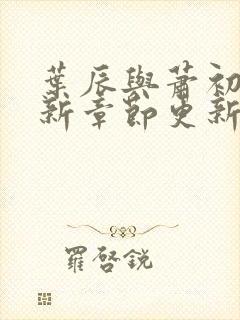 葉辰與蕭初
新章節更新
羅啓銳